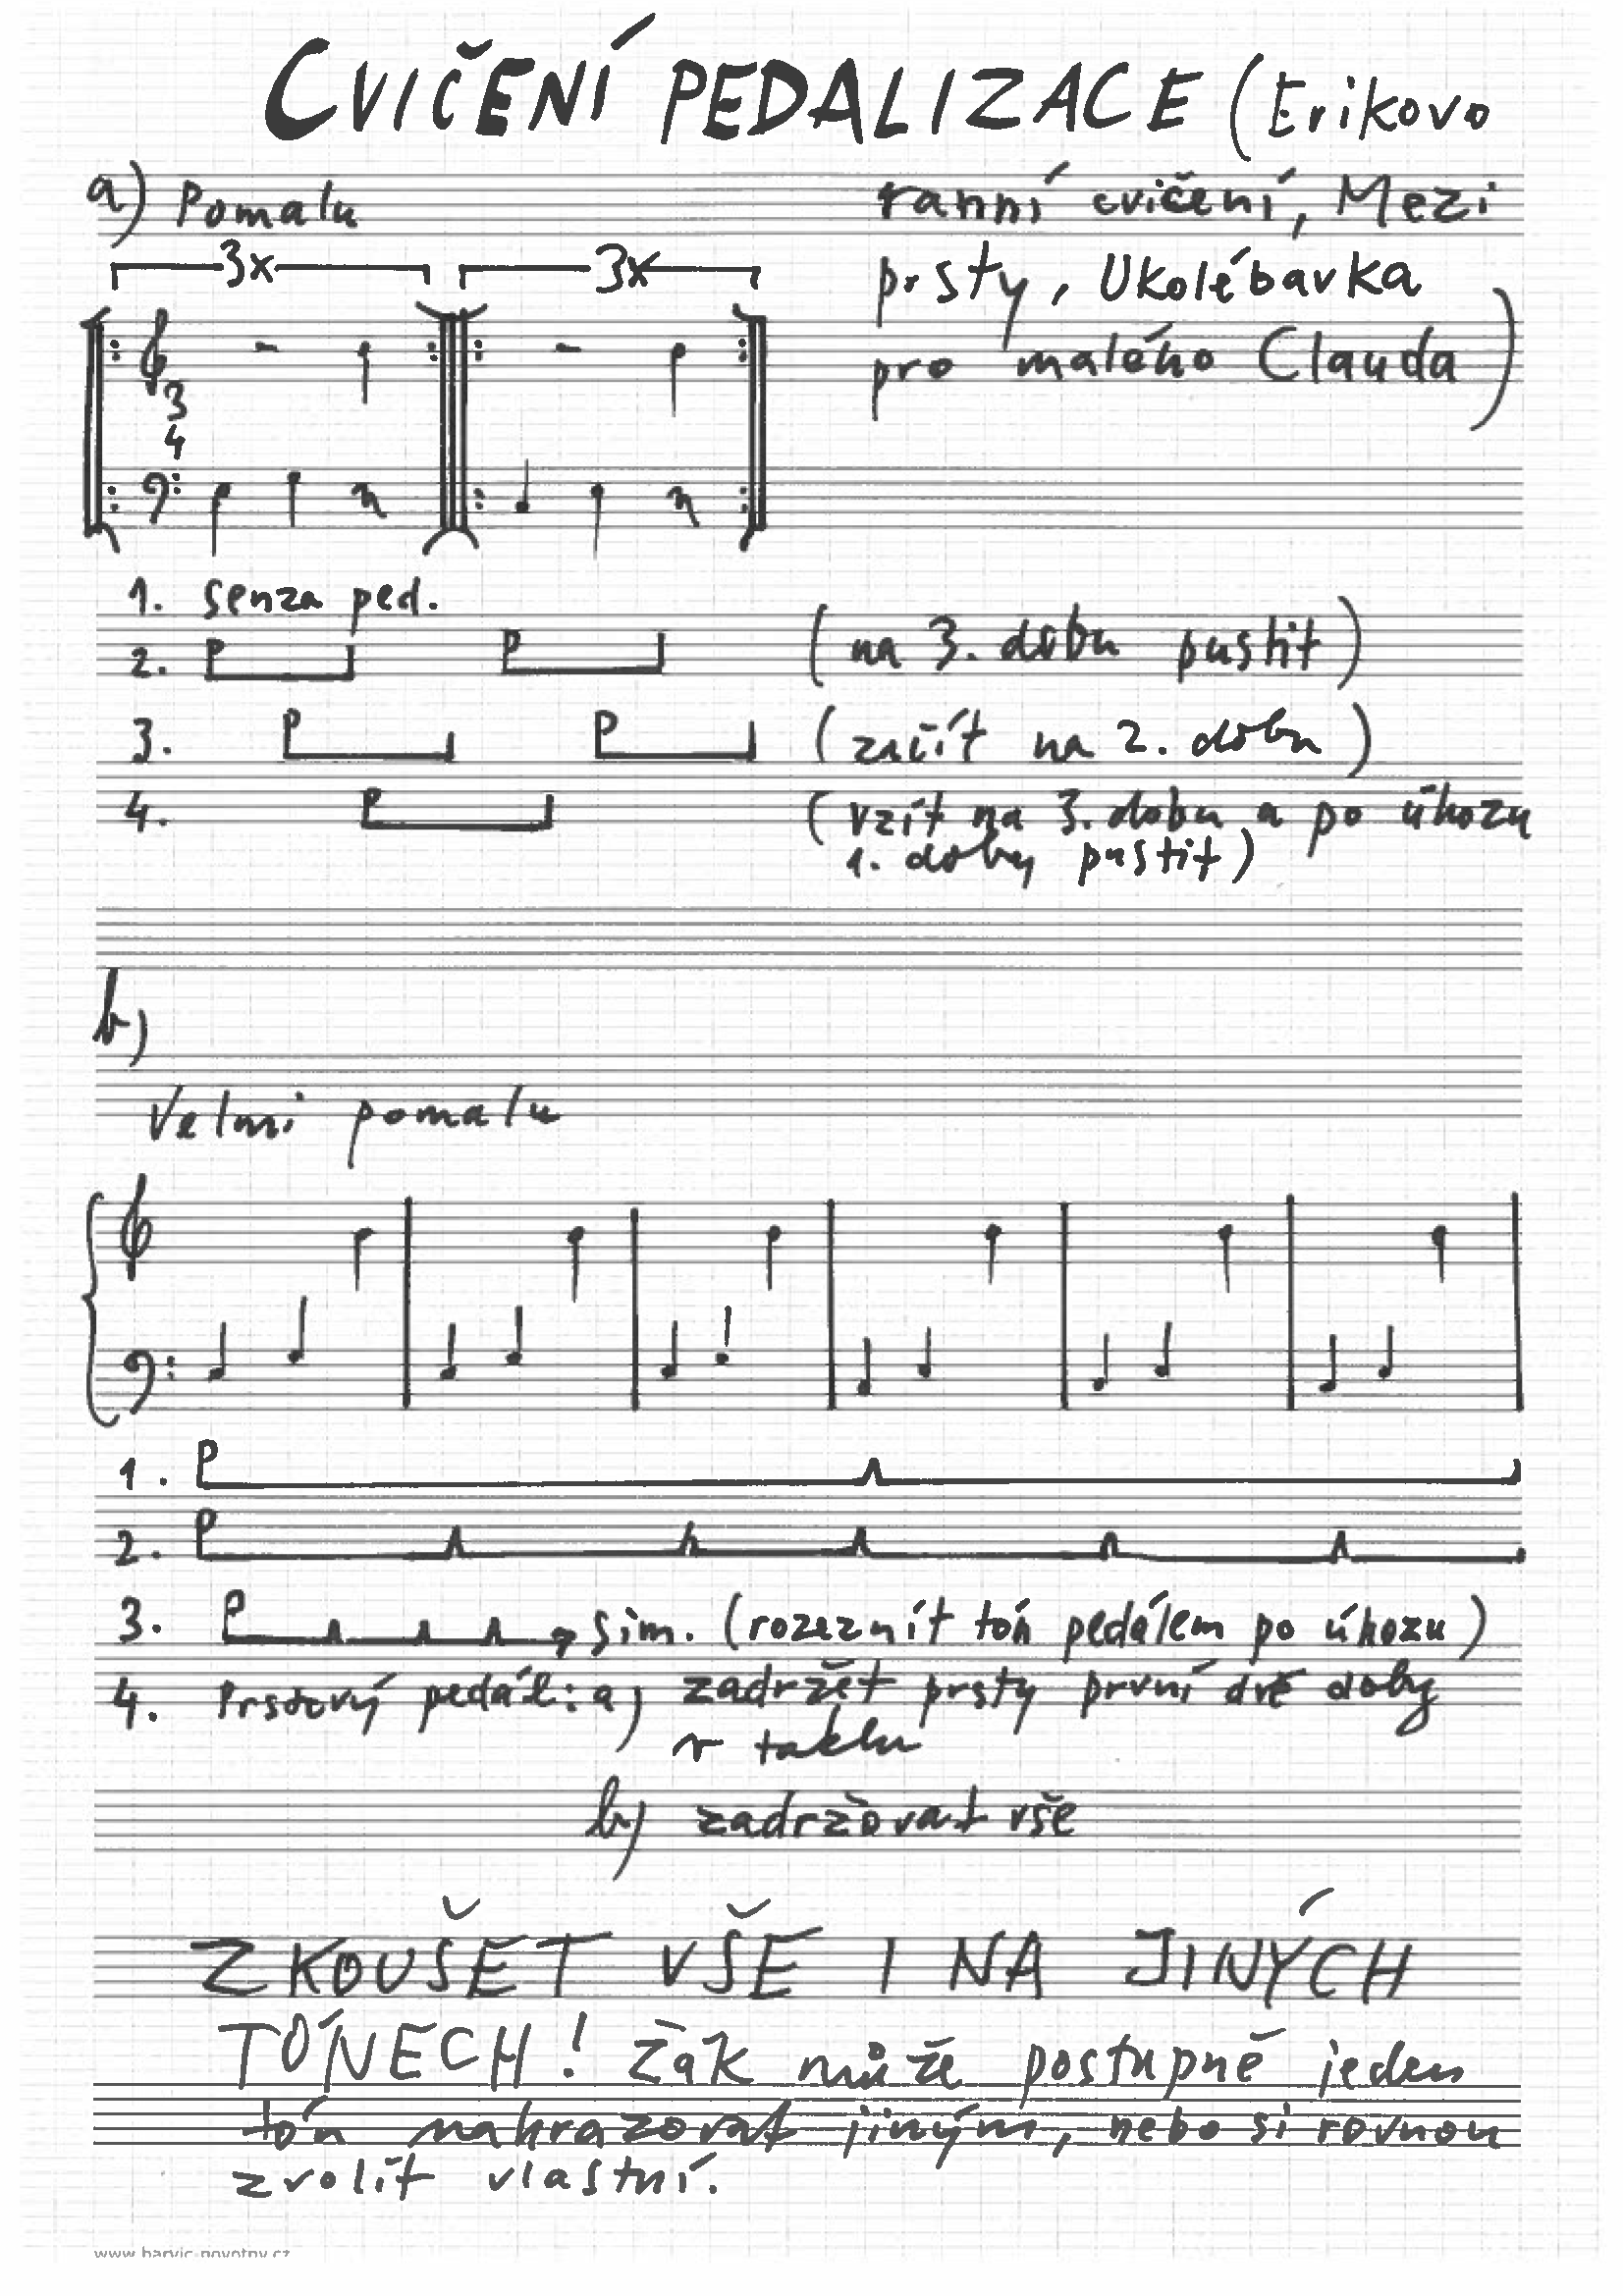 CVIČENÍ PEDALIZACE (Erikovo
ranní cvičení, Mezi
prsty, Ukolébavka
pro malého Clauda)
a) Pomalu
3x 3x
3
4
1. senza ped.
2. P P (na 3. dobu pustit)
3. P P (začít na 2. dobu)
4. P (vzít na 3. dobu a po úhozu
1. doby pustit)
b)
Velmi pomalu
1. P
2. P
3. P sim. (rozeznít tón pedálem po úhozu)
4. Prstový pedál: a) zadržet prsty první dvě doby
v taktu
b) zadržovat vše
ZKOUŠET VŠE I NA JINÝCH
TÓNECH! Žák může postupně jeden
tón nahrazovat jiným, nebo si rovnou
zvolit vlastní.